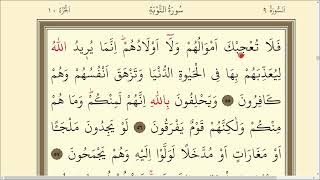 اَلسُّورَةُ ٩ سُورَةُ التَّوْبَةِ اَلْجُزْءُ ١٠
فَلَا تُعْجِبْكَ اَمْوَالُهُمْ وَلَٓا اَوْلَادُهُمْ اِنَّمَا يُر۪يدُ اللّٰهُ
لِيُعَذِّبَهُمْ بِهَا فِي الْحَيٰوةِ الدُّنْيَا وَتَزْهَقَ اَنْفُسُهُمْ وَهُمْ
كَافِرُونَ ﴿٥٥﴾ وَيَحْلِفُونَ بِاللّٰهِ اِنَّهُمْ لَمِنْكُمْ وَمَا هُمْ
مِنْكُمْ وَلٰكِنَّهُمْ قَوْمٌ يَفْرَقُونَ ﴿٥٦﴾ لَوْ يَجِدُونَ مَلْجَـًٔا
اَوْ مَغَارَاتٍ اَوْ مُدَّخَلًا لَوَلَّوْا اِلَيْهِ وَهُمْ يَجْمَحُونَ ﴿٥٧﴾